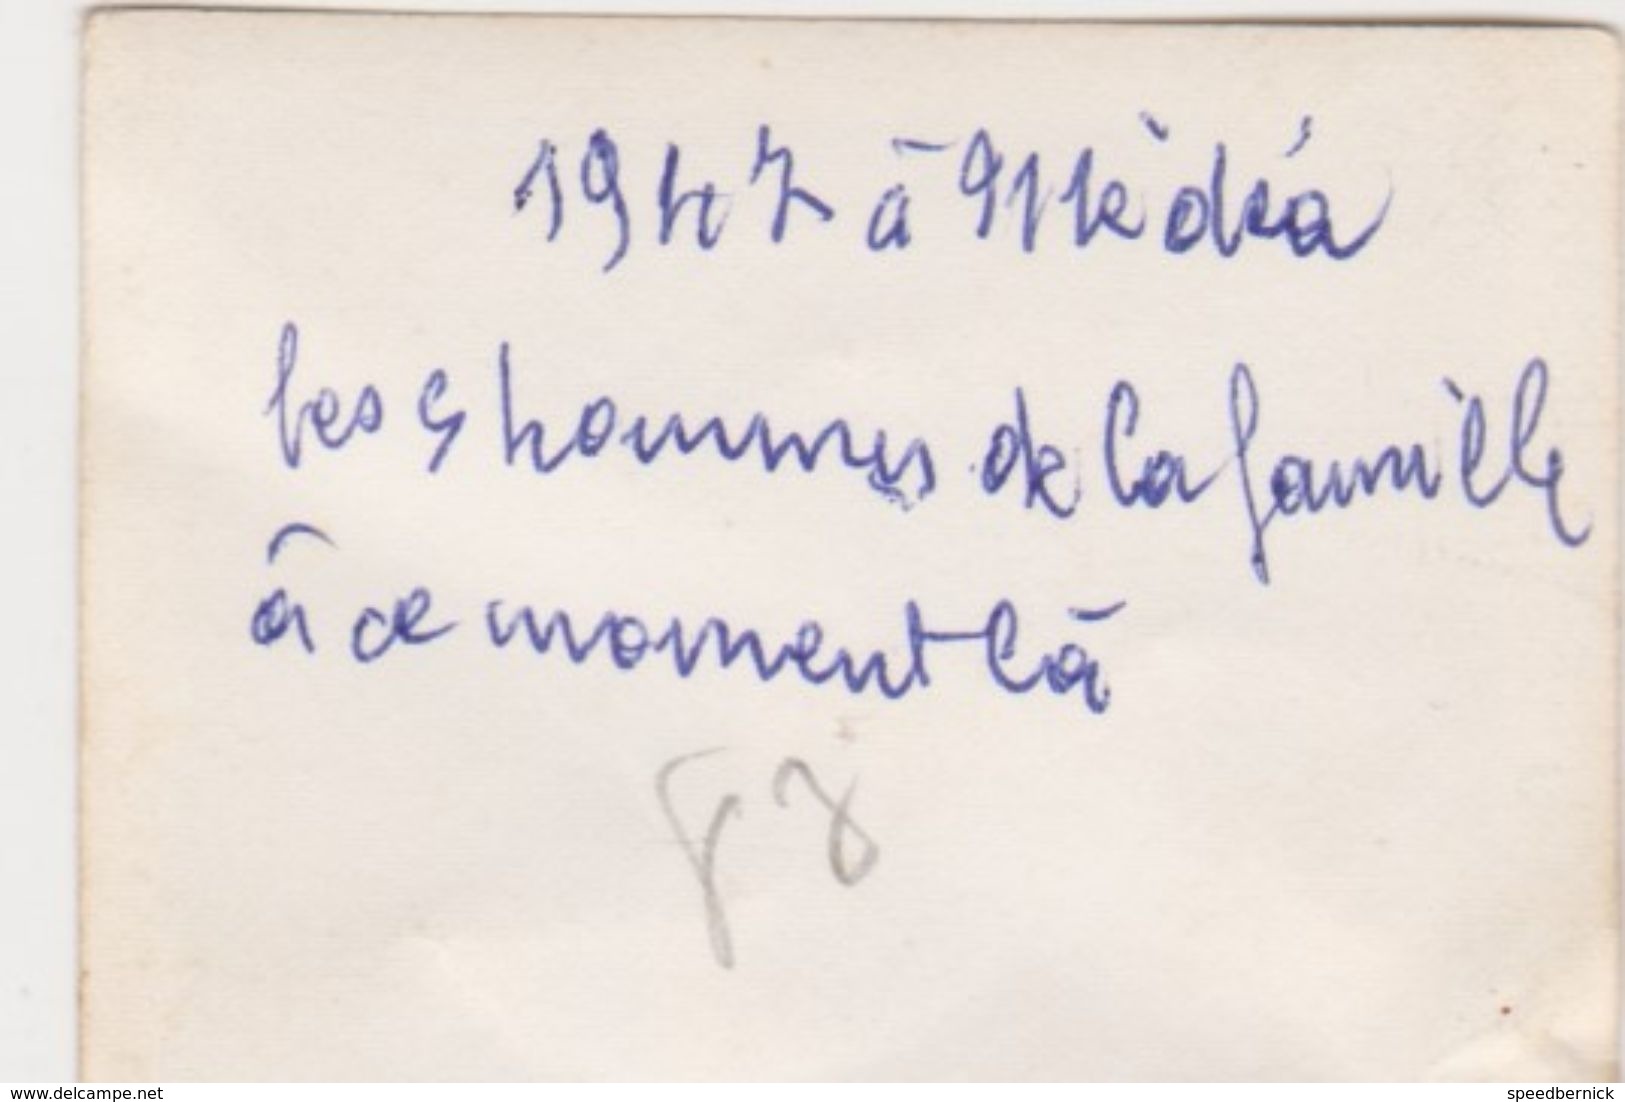 1947 à Mèdéa
les 5 hommes de la famille
à ce moment là
www.delcampe.net
speedbernick